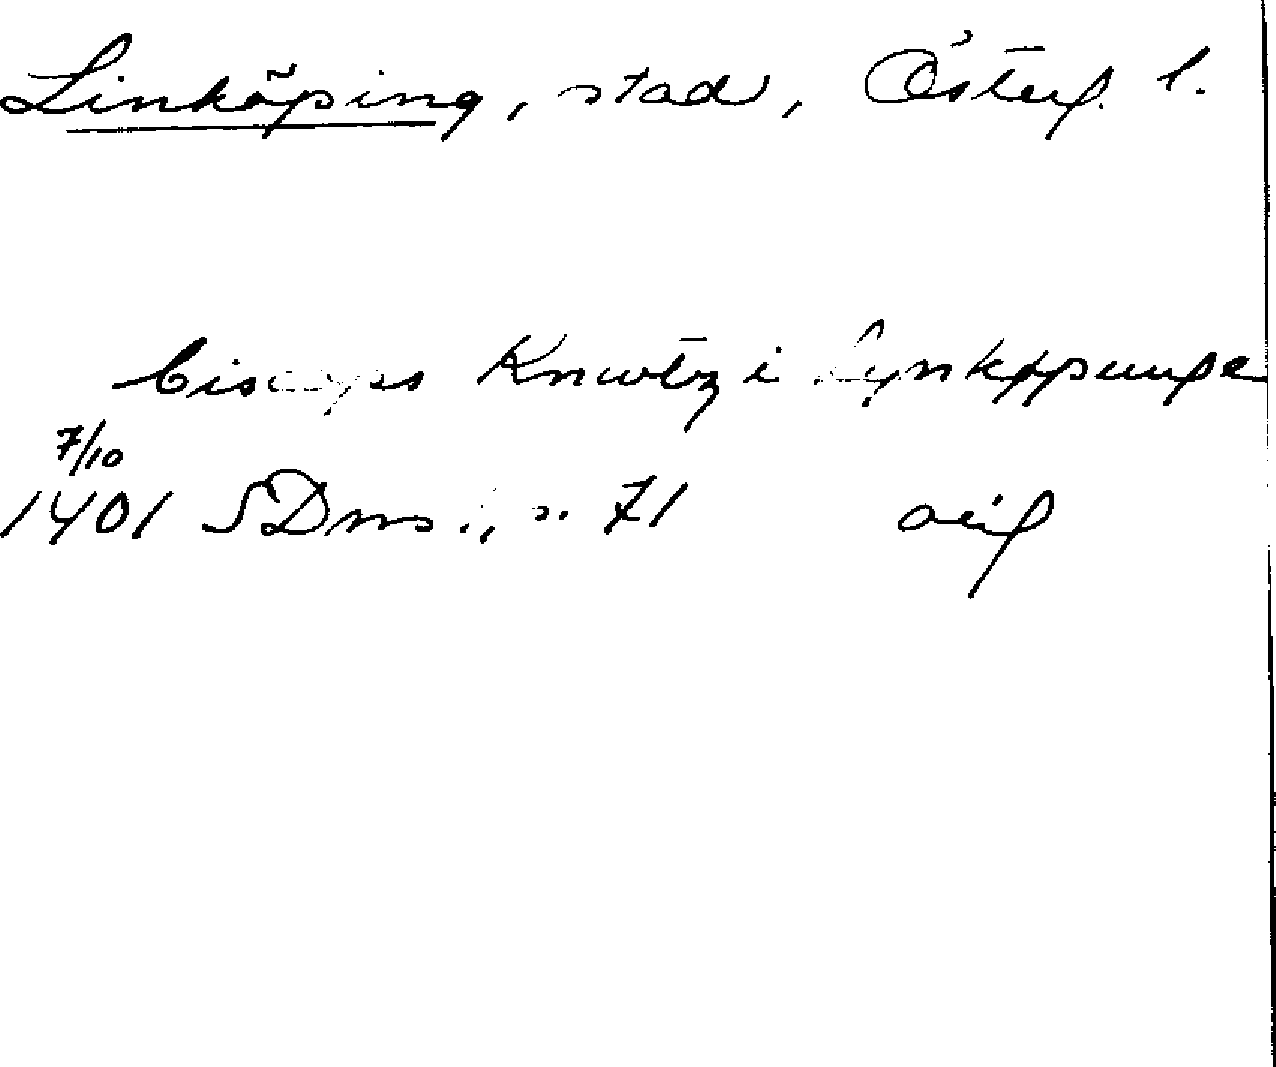 Linköping, stad, Österg. l.
biscops Knwtz i Lynkøpunge
7/10
1401 SDns 1, s. 71 orig